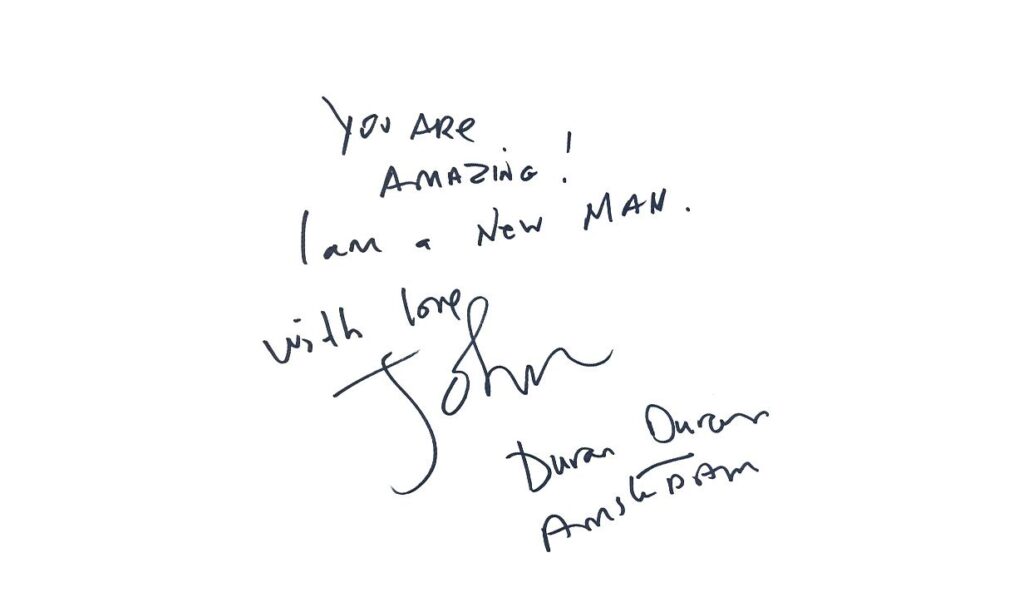 YOU ARE
AMAZING!
I am a New MAN.
with love
John
Duran Duran
AmsterDAm